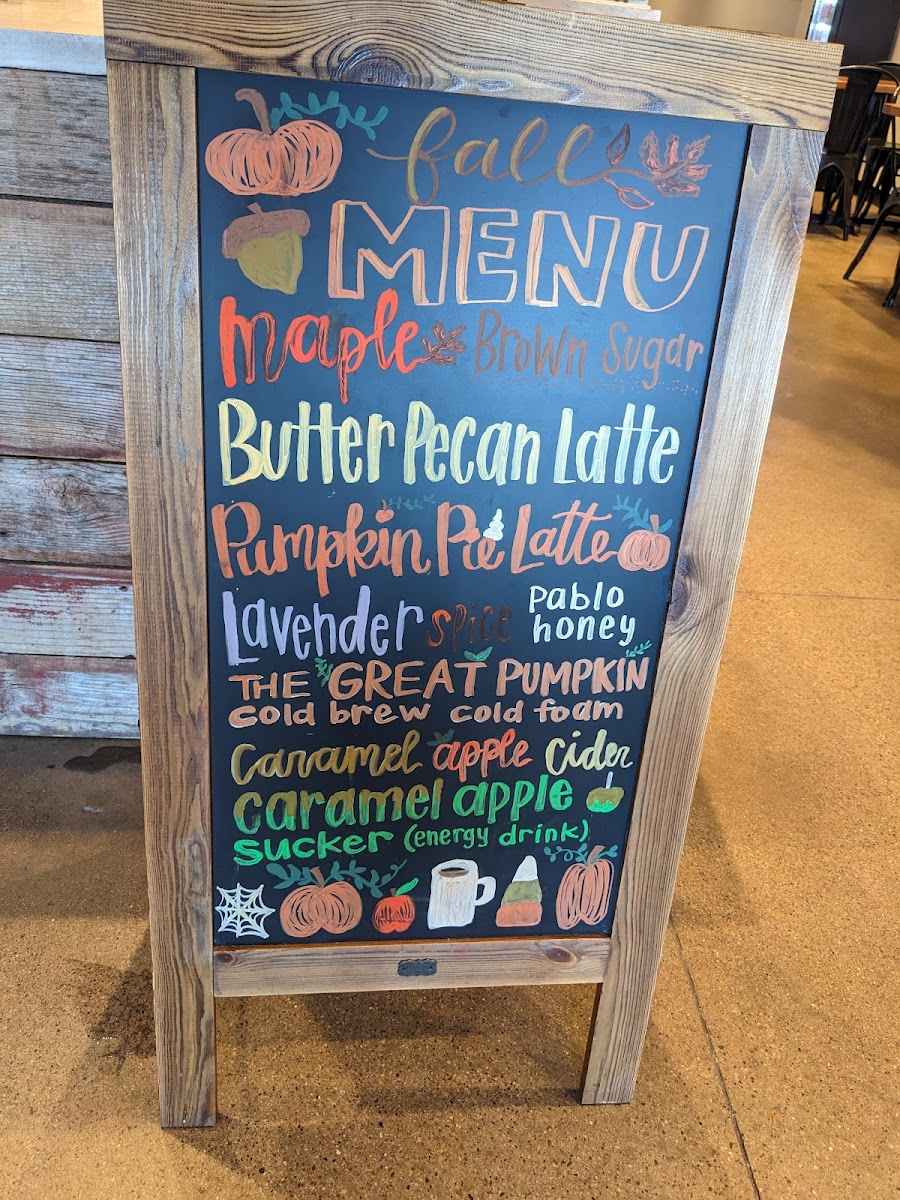 fall
MENU
maple Brown Sugar
Butter Pecan Latte
Pumpkin Pie Latte
Lavender spice pablo honey
THE GREAT PUMPKIN
cold brew cold foam
caramel apple cider
caramel apple
sucker (energy drink)